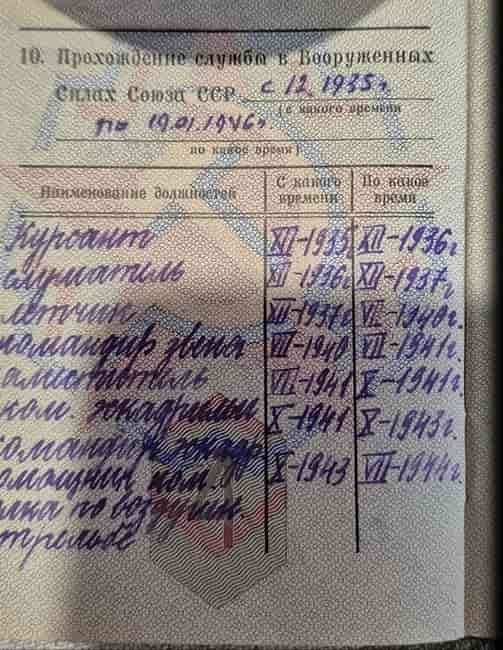 10. Прохождение службы в Вооруженных
Силах Союза ССР с 12.1935г.
(с какого времени
по 19.01.1946г.
по какое время)
Наименование должностей С какого времени По какое время
Курсант XII-1935 XII-1936г
слушатель XII-1936г XII-1937г
летчик XII-1937г VII-1940г.
командир звена VII-1940 VII-1941г.
аместитель VII-1941 X-1941г.
ком. эскадрильи X-1941 X-1943г.
командир эскадр
омощник ком. X-1943 VII-1944г.
лка по воздушн.
трельбе